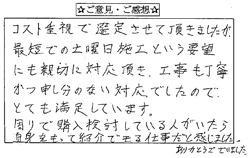 ☆ご意見・ご感想☆
コスト重視で選定させて頂きましたが
最短での土曜日施工という要望
にも親切に対応頂き、工事も丁寧
かつ申し分のない対応でしたので
とても満足しています。
周りで購入検討している人がいたら
自身をもって紹介できる仕事だと感じました。
ありがとうございました。